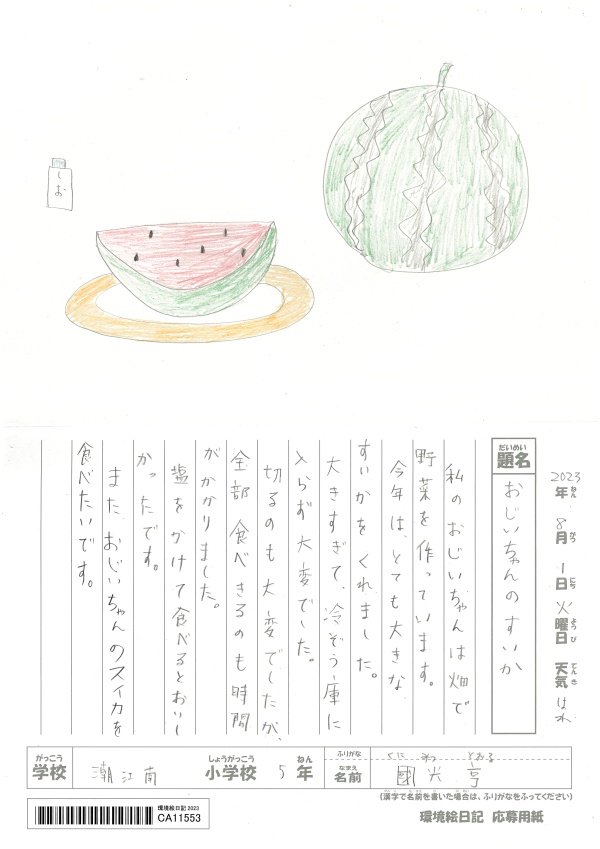 しお
2023年ねん 8月がつ 1日にち 火曜日ようび 天気てんき はれ
題名だいめい おじいちゃんのすいか
私のおじいちゃんは畑で
野菜を作っています。
今年は、とても大きな
すいかをくれました。
大きすぎて、冷ぞう庫に
入らず大変でした。
切るのも大変でしたが、
全部食べきるのも時間
がかかりました。
塩をかけて食べるとおいし
かったです。
またおじいちゃんのスイカを
食べたいです。
がっこう しょうがっこう ねん ふりがな くに みつ とおる
学校 潮江南 小学校 5年 なまえ 名前 國光 亨
(漢字で名前を書いた場合は、ふりがなをふってください)
環境絵日記 2023
CA11553
環境絵日記 応募用紙